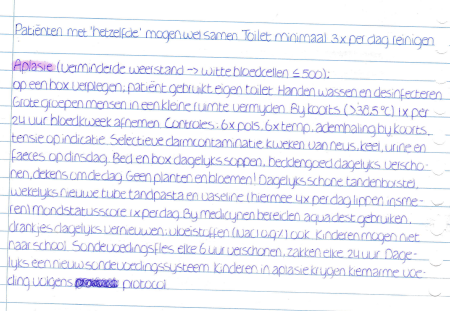 Patiënten met 'hetzelfde' mogen wel samen. Toilet minimaal 3x per dag reinigen
Aplasie (verminderde weerstand → witte bloedcellen ≤ 500):
op een box verplegen, patiënt gebruikt eigen toilet. Handen wassen en desinfecteren.
Grote groepen mensen in een kleine ruimte vermijden. Bij koorts (>38,5 °C) 1x per
24 uur bloedkweek afnemen. Controles: 6x pols, 6x temp, ademhaling bij koorts,
tensie op indicatie. Selectieve darmcontaminatie: kweken van neus, keel, urine en
faeces op dinsdag. Bed en box dagelijks soppen, beddengoed dagelijks verscho-
nen, dekens om de dag. Geen planten en bloemen! Dagelijks schone tandenborstel,
wekelijks nieuwe tube tandpasta en vaseline (hiermee 4x per dag lippen insme-
ren) mondstatusscore 1x per dag. Bij medicijnen bereiden aqua dest gebruiken,
drankjes dagelijks vernieuwen, vloeistoffen (NaCl 0,9%) ook. Kinderen mogen niet
naar school. Sondevoedingsfles elke 6 uur verschonen, zakken elke 24 uur. Dage-
lijks een nieuw sondevoedingssysteem. Kinderen in aplasie krijgen kiemarme voe-
ding volgens protocol.